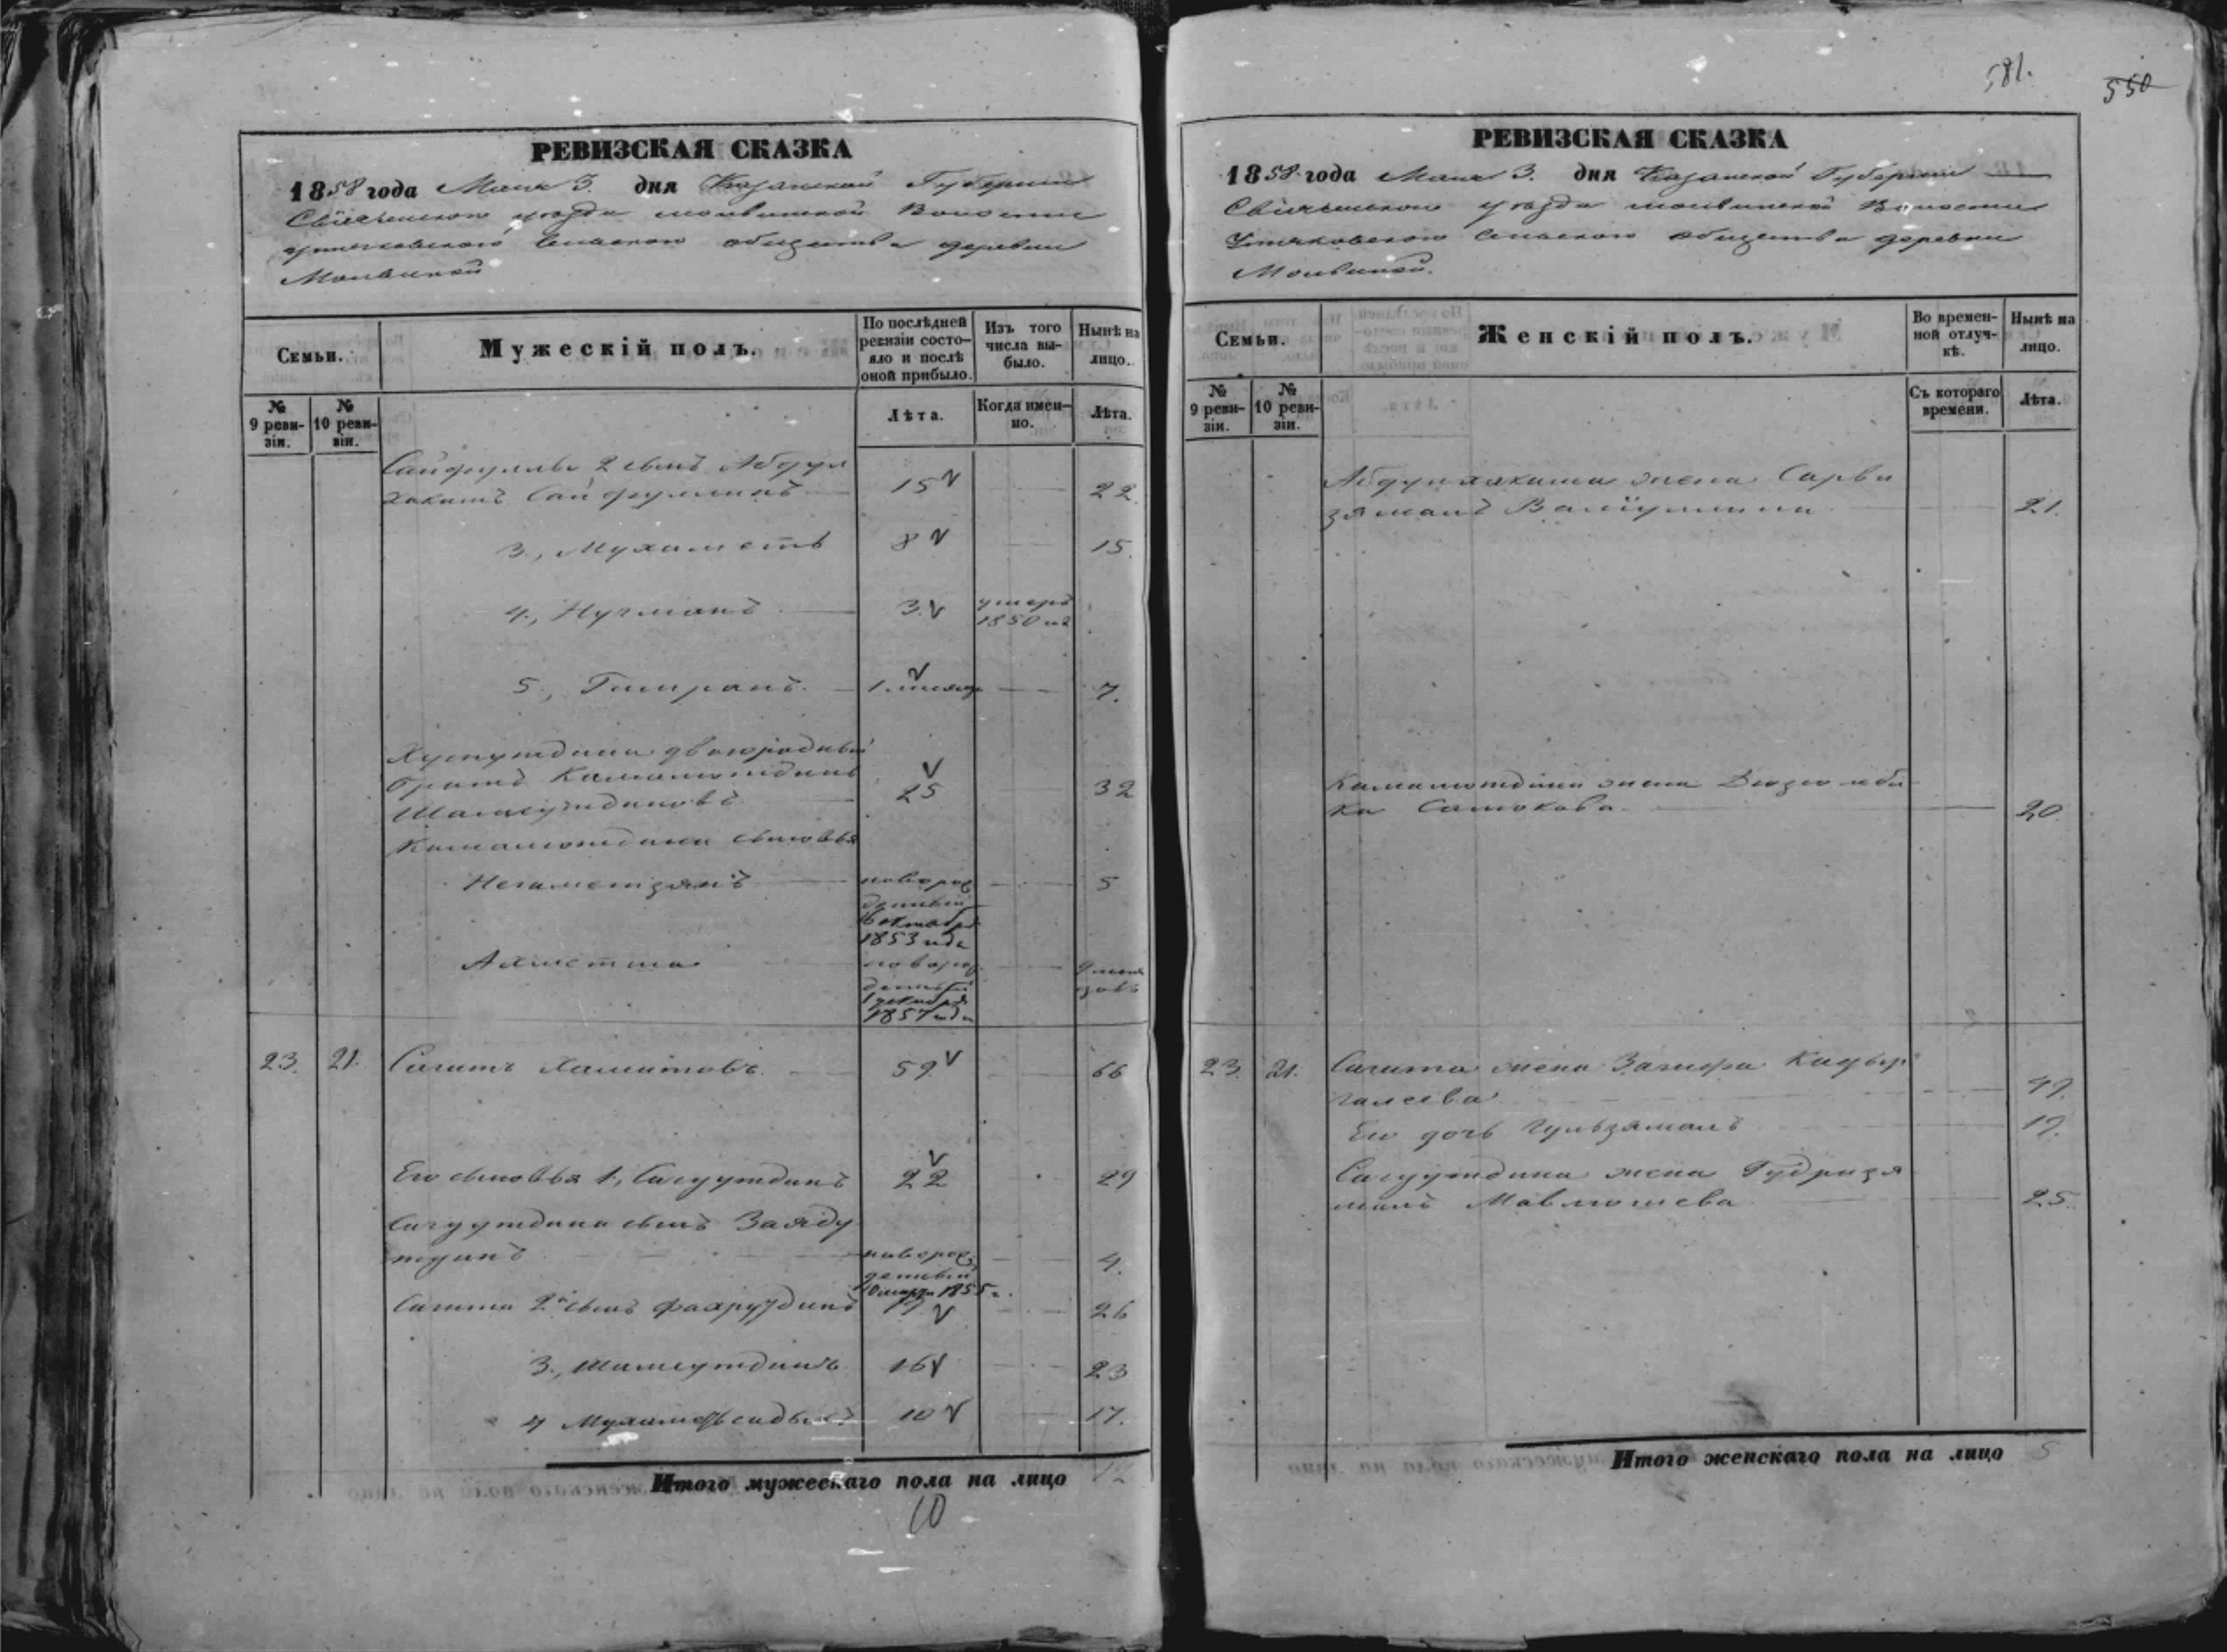 581.
550
РЕВИЗСКАЯ СКАЗКА
1858 года Мая 3. дня Казанской Губернии
Свіяжскаго уезда молвинской Волости
Утяковскаго сельскаго общества деревни
Молвиной
Семьи.
Мужескій полъ.
По послѣдней ревизіи состояло и послѣ оной прибыло.
Изъ того числа выбыло.
Нынѣ на лицо.
№ 9 ревизіи.
№ 10 ревизіи.
Лѣта.
Когда именно.
Лѣта.
Сайфуллы 2 сынъ Абдул
хакимъ Сайфуллинъ 15 22
3, Мухаметъ 8 15.
4, Нугманъ 3. умеръ
1850 го
5, Гимранъ. 1. месяц 7.
двоюродный
братъ Камалютдинъ
25 32
Камалютдина сыновья
Негаметзянъ новорож 5
денный
16 октября
1853 года
Ахметша новорож
денный
1857 года
23. 21. Сагитъ Хамитовъ 59 66
Его сыновья 1, Сагутдинъ 22 29
сынъ
новорож 4.
денный
10 марта 1855 г.
Сагита 2й сынъ Фахрутдинъ 26
3, Шамсутдинъ 16 23
4 Мухаметьсадыкъ 10 17.
Итого мужескаго пола на лицо
10
РЕВИЗСКАЯ СКАЗКА
1858 года Мая 3. дня Казанской Губернии
Свіяжскаго уезда молвинской Волости
Утяковскаго сельскаго общества деревни
Молвиной.
Семьи.
Женскій полъ.
Во временной отлучкѣ.
Нынѣ на лицо.
№ 9 ревизіи.
№ 10 ревизіи.
Съ котораго времени.
Лѣта.
Абдулхакима жена Сарви
замалъ Валіуллина 21.
Камалютдина жена
20.
23. 21. Сагита жена Загифа Кадыр
галеева
Его дочь Гульзямалъ
жена Бадризя
малъ Мавлюшева 25.
Итого женскаго пола на лицо 5